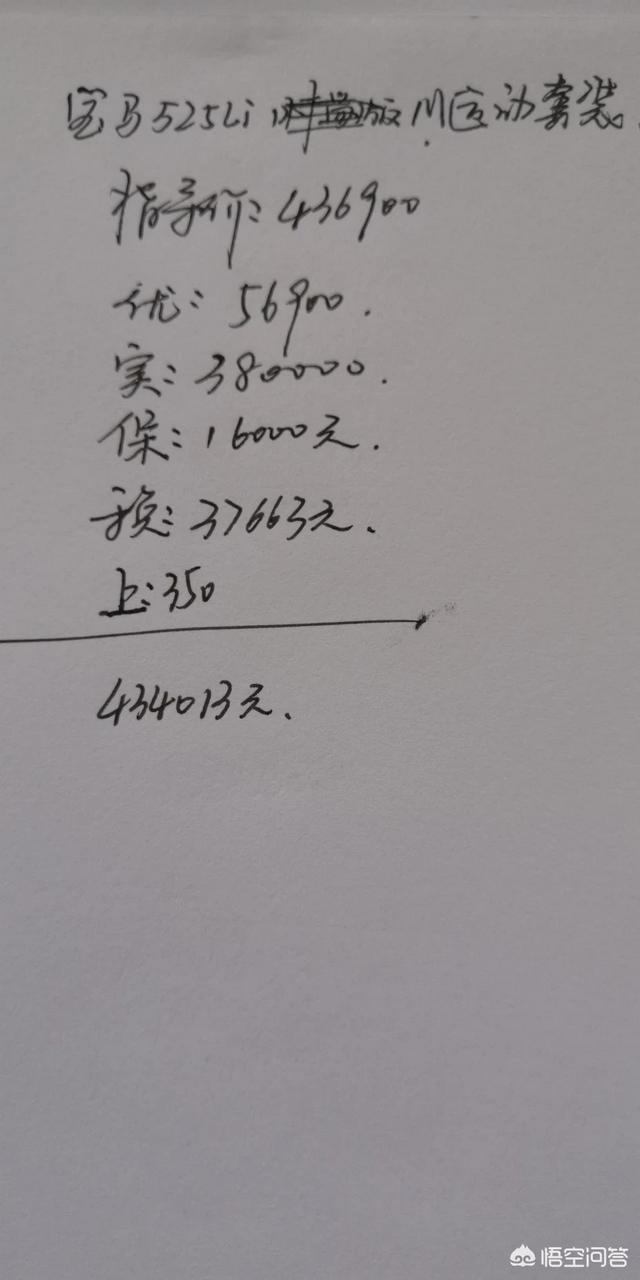 宝马525Li M运动套装
指导价:436900
优:56900.
实:380000.
保:16000元.
预:37663元.
上:350
434013元.
悟空问答